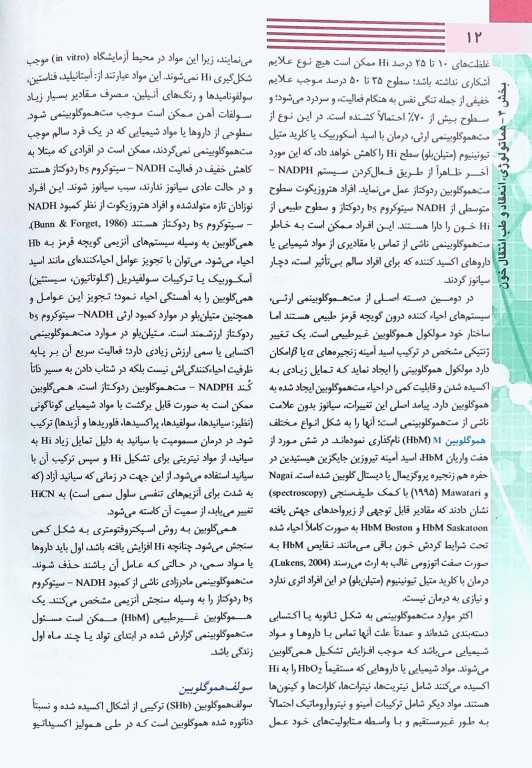 ۱۲
بخش ۴ - هماتولوژی، انعقاد و طب انتقال خون
غلظت‌های ۱۰ تا ۲۵ درصد Hi ممکن است هیچ نوع علایم
آشکاری نداشته باشد؛ سطوح ۳۵ تا ۵۰ درصد موجب علایم
خفیفی از جمله تنگی نفس به هنگام فعالیت، و سردرد می‌شود؛ و
سطوح بیش از ۷۰٪ احتمالاً کشنده است. در این نوع از
مت‌هموگلوبینمی ارثی، درمان با اسید آسکوربیک یا کلرید متیل
تیونینیوم (متیلن‌بلو) سطح Hi را کاهش خواهد داد، که این مورد
آخر ظاهراً از طریق فعال‌کردن سیستم NADPH –
مت‌هموگلوبین ردوکتاز عمل می‌نماید. افراد هتروزیگوت سطوح
متوسطی از NADH سیتوکروم b5 ردوکتاز و سطوح طبیعی از
Hi خون را دارا هستند. این افراد ممکن است به خاطر
مت‌هموگلوبینمی ناشی از تماس با مقادیری از مواد شیمیایی یا
داروهای اکسید کننده که برای افراد سالم بی‌تأثیر است، دچار
سیانوز گردند.
در دومین دسته اصلی از مت‌هموگلوبینمی ارثی،
سیستم‌های احیاء کننده درون گویچه قرمز طبیعی هستند اما
ساختار خود مولکول هموگلوبین غیرطبیعی است. یک تغییر
ژنتیکی مشخص در ترکیب اسید آمینه زنجیره‌های α یا β امکان
دارد مولکول هموگلوبینی را ایجاد نماید که تمایل زیادی به
اکسیده شدن و قابلیت کمی در احیاء مت‌هموگلوبین ایجاد شده به
هموگلوبین دارد. پیامد اصلی این تغییرات، سیانوز بدون علامت
ناشی از مت‌هموگلوبینمی است؛ آنها را به شکل انواع مختلف
هموگلوبین M (HbM) نامگذاری نموده‌اند. در شش مورد از
هفت واریان HbM، اسید آمینه تیروزین جایگزین هیستیدین در
حفره هم زنجیره پروگزیمال یا دیستال گلوبین شده است. Nagai
و Mawatari (۱۹۹۵) با کمک طیف‌سنجی (spectroscopy)
نشان دادند که مقادیر قابل توجهی از زیرواحدهای جهش یافته
HbM Saskatoon و HbM Boston به صورت کاملاً احیاء شده
تحت شرایط گردش خون باقی می‌مانند. نقایص HbM به
صورت صفت اتوزومی غالب به ارث می‌رسند (Lukens, 2004).
درمان با کلرید متیل تیونینیوم (متیلن‌بلو) در این افراد اثری ندارد
و نیازی به درمان نیست.
اکثر موارد مت‌هموگلوبینمی به شکل ثانویه یا اکتسابی
دسته‌بندی شده‌اند و عمدتاً علت آنها تماس با داروها و مواد
شیمیایی می‌باشد که موجب افزایش تشکیل همی‌گلوبین
می‌شوند. مواد شیمیایی یا داروهایی که مستقیماً HbO2 را به Hi
اکسیده می‌کنند شامل نیتریت‌ها، نیترات‌ها، کلرات‌ها و کینون‌ها
هستند. مواد دیگر شامل ترکیبات آمینو و نیتروآروماتیک احتمالاً
به طور غیرمستقیم و با واسطه متابولیت‌های خود عمل
می‌نمایند، زیرا این مواد در محیط آزمایشگاه (in vitro) موجب
شکل‌گیری Hi نمی‌شوند. این مواد عبارتند از: اَستانیلید، فناستین،
سولفونامیدها و رنگ‌های آنیلین. مصرف مقادیر بسیار زیاد
سولفات آهن ممکن است موجب مت‌هموگلوبینمی شود.
سطوحی از داروها یا مواد شیمیایی که در یک فرد سالم موجب
مت‌هموگلوبینمی نمی‌گردند، ممکن است در افرادی که مبتلا به
کاهش خفیف در فعالیت NADH – سیتوکروم b5 ردوکتاز هستند
و در حالت عادی سیانوز ندارند، سبب سیانوز شوند. این افراد
نوزادان تازه متولدشده و افراد هتروزیگوت از نظر کمبود NADH
– سیتوکروم b5 ردوکتاز هستند (Bunn & Forget, 1986).
همی‌گلوبین به وسیله سیستم‌های آنزیمی گویچه قرمز به Hb
احیاء می‌شود. می‌توان با تجویز عوامل احیاءکننده‌ای مانند اسید
آسکوربیک یا ترکیبات سولفیدریل (گلوتاتیون، سیستئین)
همی‌گلوبین را به آهستگی احیاء نمود؛ تجویز این عوامل و
همچنین متیلن‌بلو در موارد کمبود ارثی NADH– سیتوکروم b5
ردوکتاز ارزشمند است. متیلن‌بلو در موارد مت‌هموگلوبینمی
اکتسابی یا سمی ارزش زیادی دارد؛ فعالیت سریع آن بر پایه
ظرفیت احیاءکنندگی‌اش نیست بلکه در شتاب دادن به مسیر ذاتاً
کُند NADPH – مت‌هموگلوبین ردوکتاز است. همی‌گلوبین
ممکن است به صورت قابل برگشت با مواد شیمیایی گوناگونی
(نظیر: سیانیدها، سولفیدها، پراکسیدها، فلوریدها و آزیدها) ترکیب
شود. در درمان مسمومیت با سیانید به دلیل تمایل زیاد Hi به
سیانید، از مواد نیتریتی برای تشکیل Hi و سپس ترکیب آن با
سیانید استفاده می‌شود. از این جهت در زمانی که سیانید آزاد (که
به شدت برای آنزیم‌های تنفسی سلول سمی است) به HiCN
تغییر می‌یابد، از سمیت آن کاسته می‌شود.
همی‌گلوبین به روش اسپکتروفتومتری به شکل کمی
سنجش می‌شود. چنانچه Hi افزایش یافته باشد، اول باید داروها
یا مواد سمی، در حالتی که عامل آن باشند حذف شوند.
مت‌هموگلوبینمی مادرزادی ناشی از کمبود NADH – سیتوکروم
b5 ردوکتاز را به وسیله سنجش آنزیمی مشخص می‌کنند. یک
هموگلوبین غیرطبیعی (HbM) ممکن است مسئول
مت‌هموگلوبینمی گزارش شده در ابتدای تولد یا چند ماه اول
زندگی باشد.
سولف‌هموگلوبین
سولف‌هموگلوبین (SHb) ترکیبی از اَشکال اکسیده شده و نسبتاً
دناتوره شده هموگلوبین است که در طی همولیز اکسیداتیو